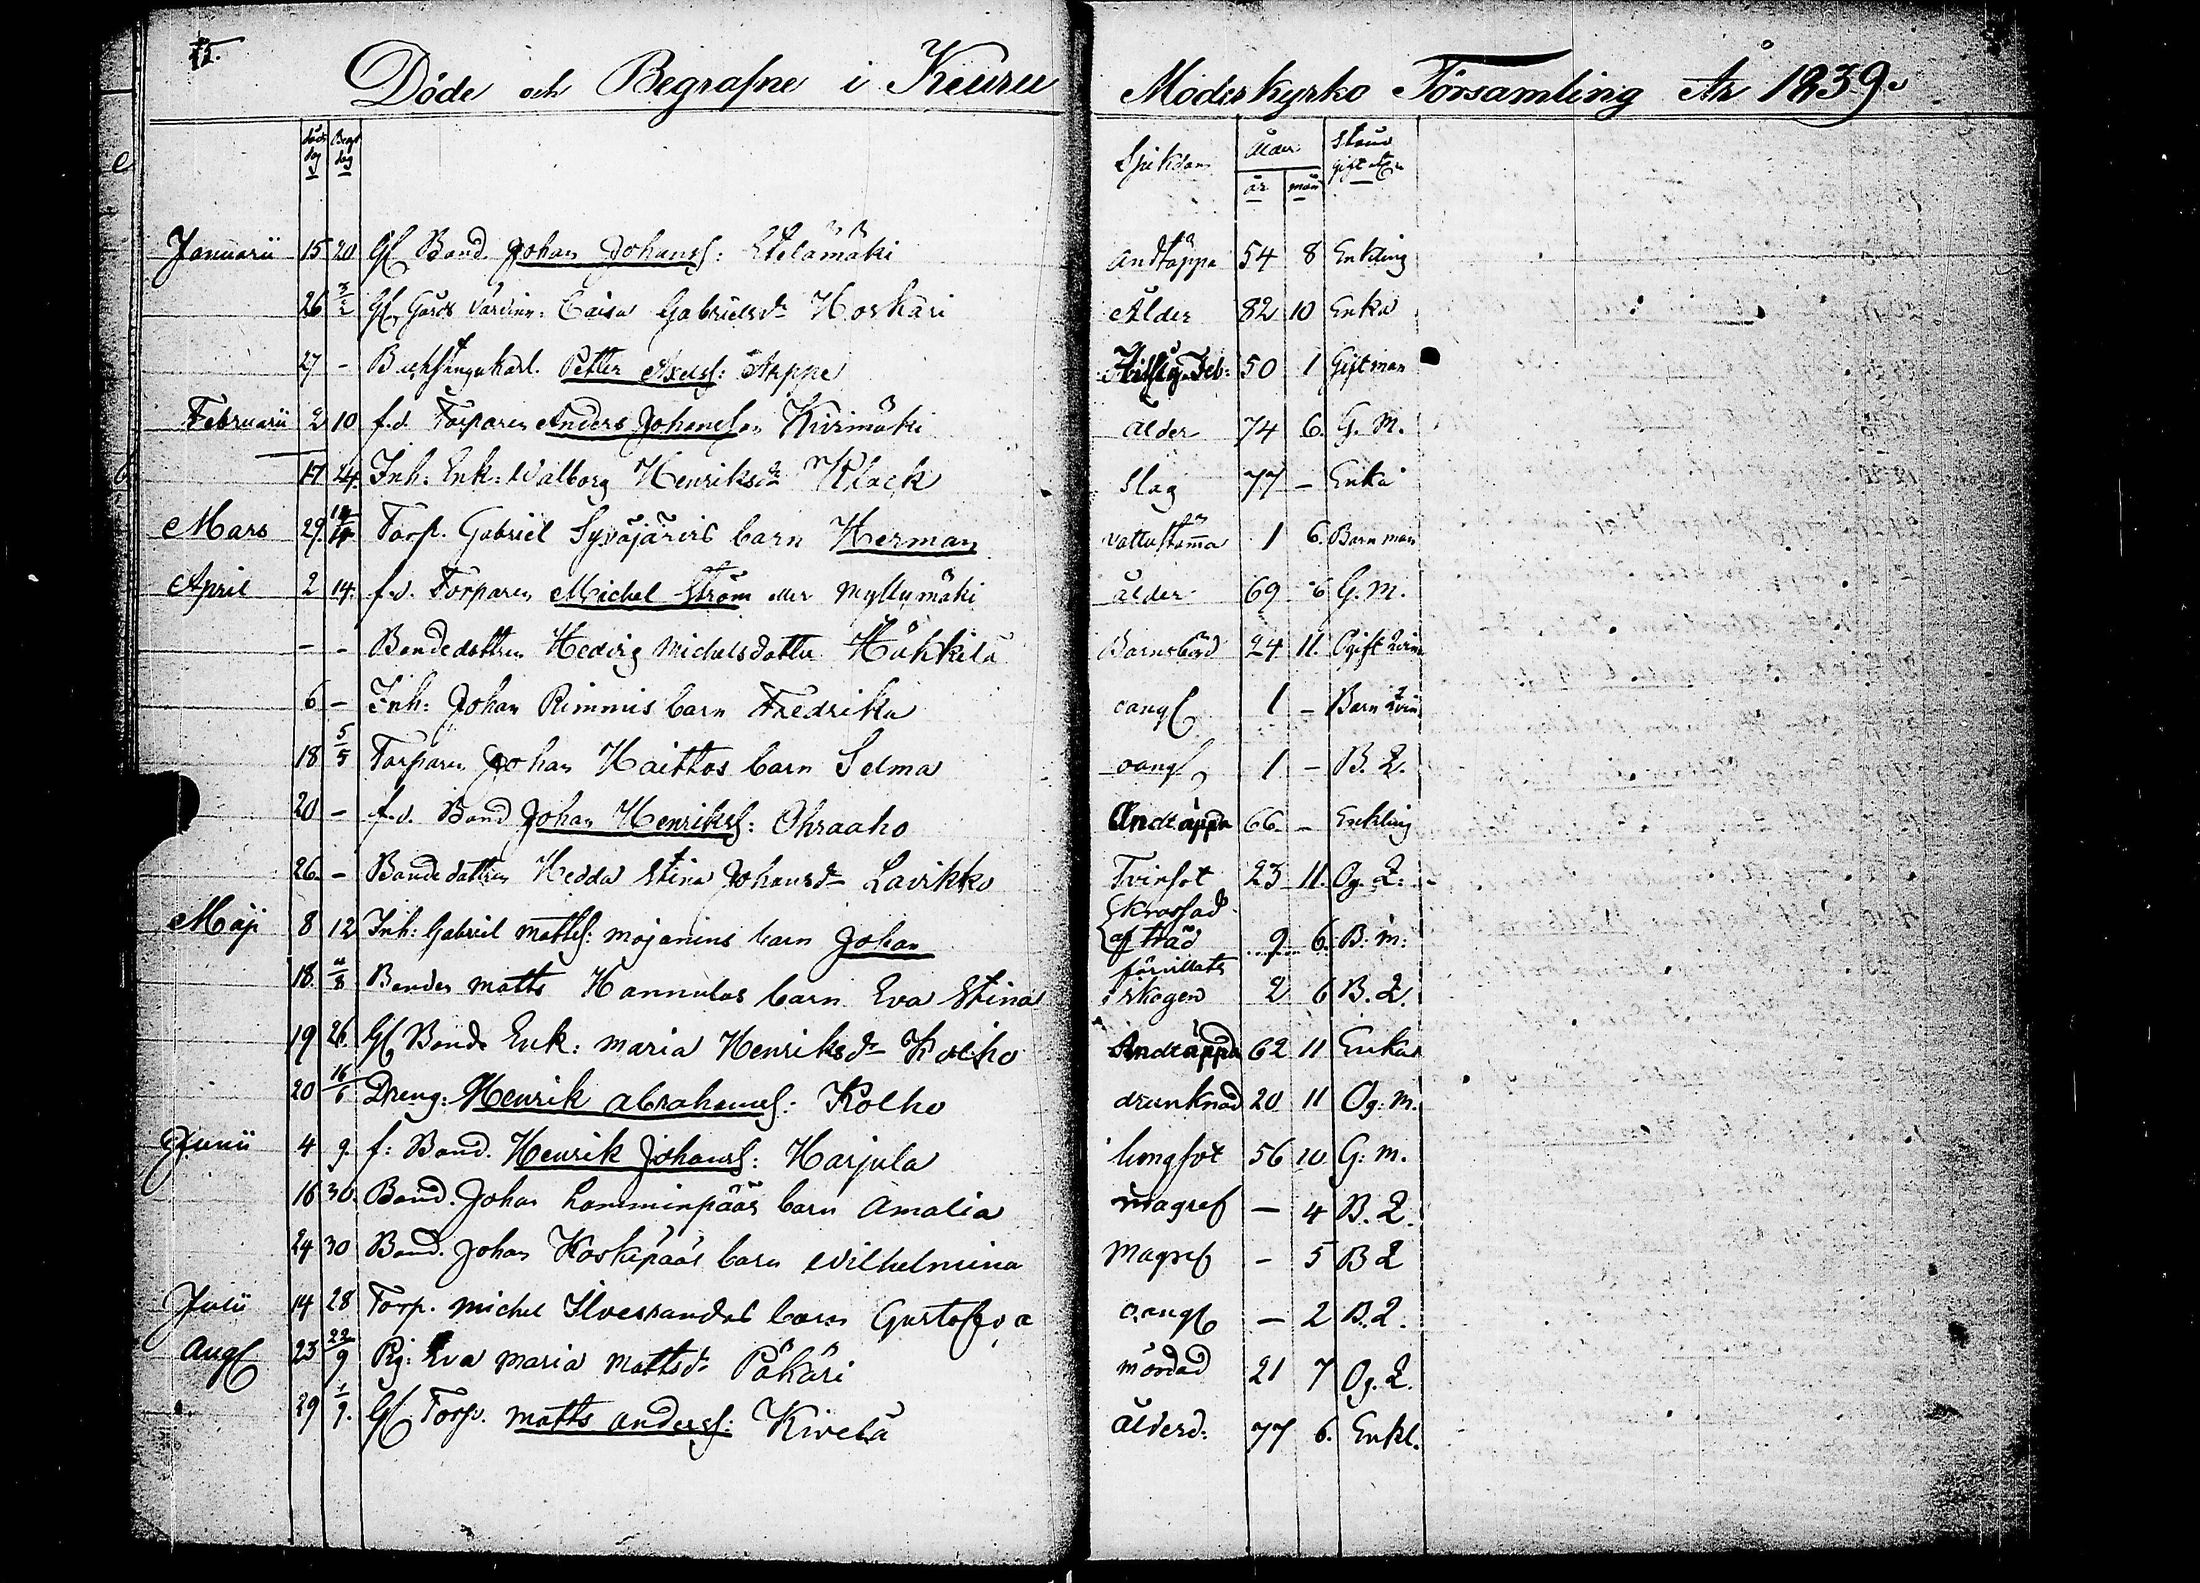 75.
Döde och Begrafne i Keuru Moderkyrko Församling År 1839.
döds dag Begr dag Sjukdom Ålder Stånd
år mån gift etc
Januarii 15 20 Gl Bond. Johan Johanss: Etelämäki Andtäppa 54 8 Enkling
26 3/2 Gl. Gårds värdinn: Caisa Gabrielsdr Hoskari Ålder 82 10 Enka
27 - Petter Axelss: Aappe 50 1 Gift man
Februarii 2 10 f.d. Torparen Anders Johansson Kivimäki ålder 74 6. G. M.
17 24. Inh: Enk: Walborg Henriksdr Klack Slag 77 - Enka
Mars 29. 14/4 Torp. Gabriel Syväjärvis barn Herman vattustämma 1 6. Barn man
April 2 14. f.d. Torparen Michel Ström eller Myllymäki ålder 69 6 G. M.
- - Bondedottren Hedvig Michelsdotter Huhkila Barnsbörd 24 11. Ogift Qvin
6 - Inh: Johan Rimmis barn Fredrika oangl 1 - Barn Qvin
18 5/5 Torparen Johan Haittos barn Selma oangl 1 - B. Q.
20 - f.d. Bond Johan Henrikss: Ohraaho Andtäppa 66 - Enkling
26. - Bondedottren Hedda Stina Johansdr Lavikko Tvinsot 23 11. Og. Q.
Maji 8 12 Inh: Gabriel Matts: Mojanins barn Johan Krossad af träd 9 6. B: m:
18. /8 Bonden Matts Hannulas barn Eva Stina förvillats i skogen 2 6 B. Q.
19 26. Gl Bonde Enk: Maria Henriksdr Kolho Andtäppa 62 11 Enka
20 16/6 Dreng: Henrik Abrahamss: Kolho drunknad 20 11 Og: m.
Junii 4 9. f: Bond. Henrik Johanss: Harjula lungsot 56 10 G: m.
16 30. Bond. Johan Lamminpääs barn Amalia magref - 4 B. Q.
24 30 Bond. Johan Koskipääs barn Wilhelmina Magref - 5 B Q
Julii 14 28 Torp. Michel Ilvessandas barn Gustafva oangl - 2 B. Q.
Aug 23 22/9 Pig: Eva Maria Mattsdr Päkäri mördad 21 7 Og. Q.
29 1/9. Gl Torp. Matts Anderss: Kivelä ålderd: 77 6. Enkl.